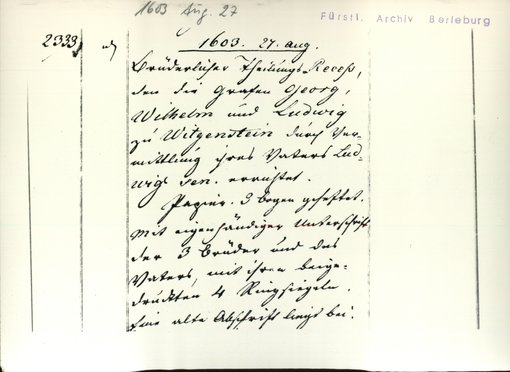 1603 Aug. 27
Fürstl. Archiv Berleburg
2333
1603. 27. Aug.
Brüderlicher Theilungs Recess,
den die Grafen Georg,
Wilhelm und Ludwig
zu Witgenstein durch Ver-
mittlung ihres Vaters Lud-
wig sen. errichtet.
Papier. 3 Bogen geheftet.
Mit eigenhändiger Unterschrift
der 3 Brüder und des
Vaters, mit ihren beige-
druckten 4 Ringsiegeln.
Eine alte Abschrift liegt bei.